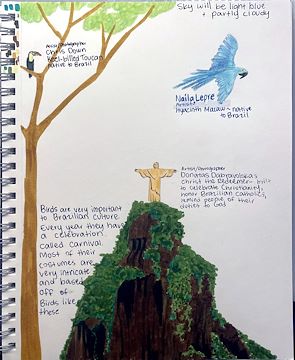 Sky will be light blue
+ partly cloudy
Artist/Photographer
Chris Down
Keel-billed Toucan
native to Brazil
Naila Lepre
Artist
Hyacinth Macaw ~ native
to Brazil
Artist/Photographer
Donatas Dabravolskas
Christ the Redeemer ~ built
to celebrate Christianity,
honor Brazilian Catholics,
remind people of their
duties to God
Birds are very important
to Brazilian culture
Every year they have
a celebration
called carnival.
Most of their
costumes are
very intricate
and based
off of
Birds like
these